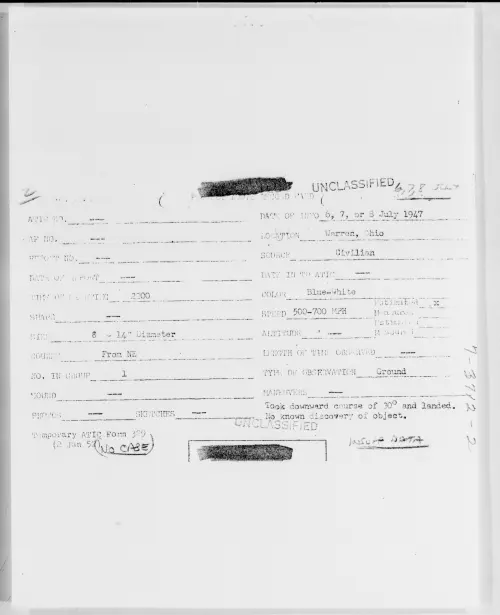 UNCLASSIFIED
ATIC NO. —
DATE OF INFO 6, 7, or 8 July 1947
AF NO. —
LOCATION Warren, Ohio
REPORT NO. —
SOURCE Civilian
DATE OF REPORT —
DATE IN TO ATIC —
2200
COLOR Blue-White
SHAPE —
SPEED 500-700 MPH
Estimated x
SIZE 8 - 14" Diameter
ALTITUDE —
COURSE From NE
LENGTH OF TIME OBSERVED —
NO. IN GROUP 1
TYPE OF OBSERVATION Ground
SOUND —
MANEUVERS —
PHOTOS — SKETCHES —
Took downward course of 30° and landed.
No known discovery of object.
UNCLASSIFIED
Temporary ATIC Form 329
(2 Jan 52)
No CASE
INSUFF DATA
7-3712-2